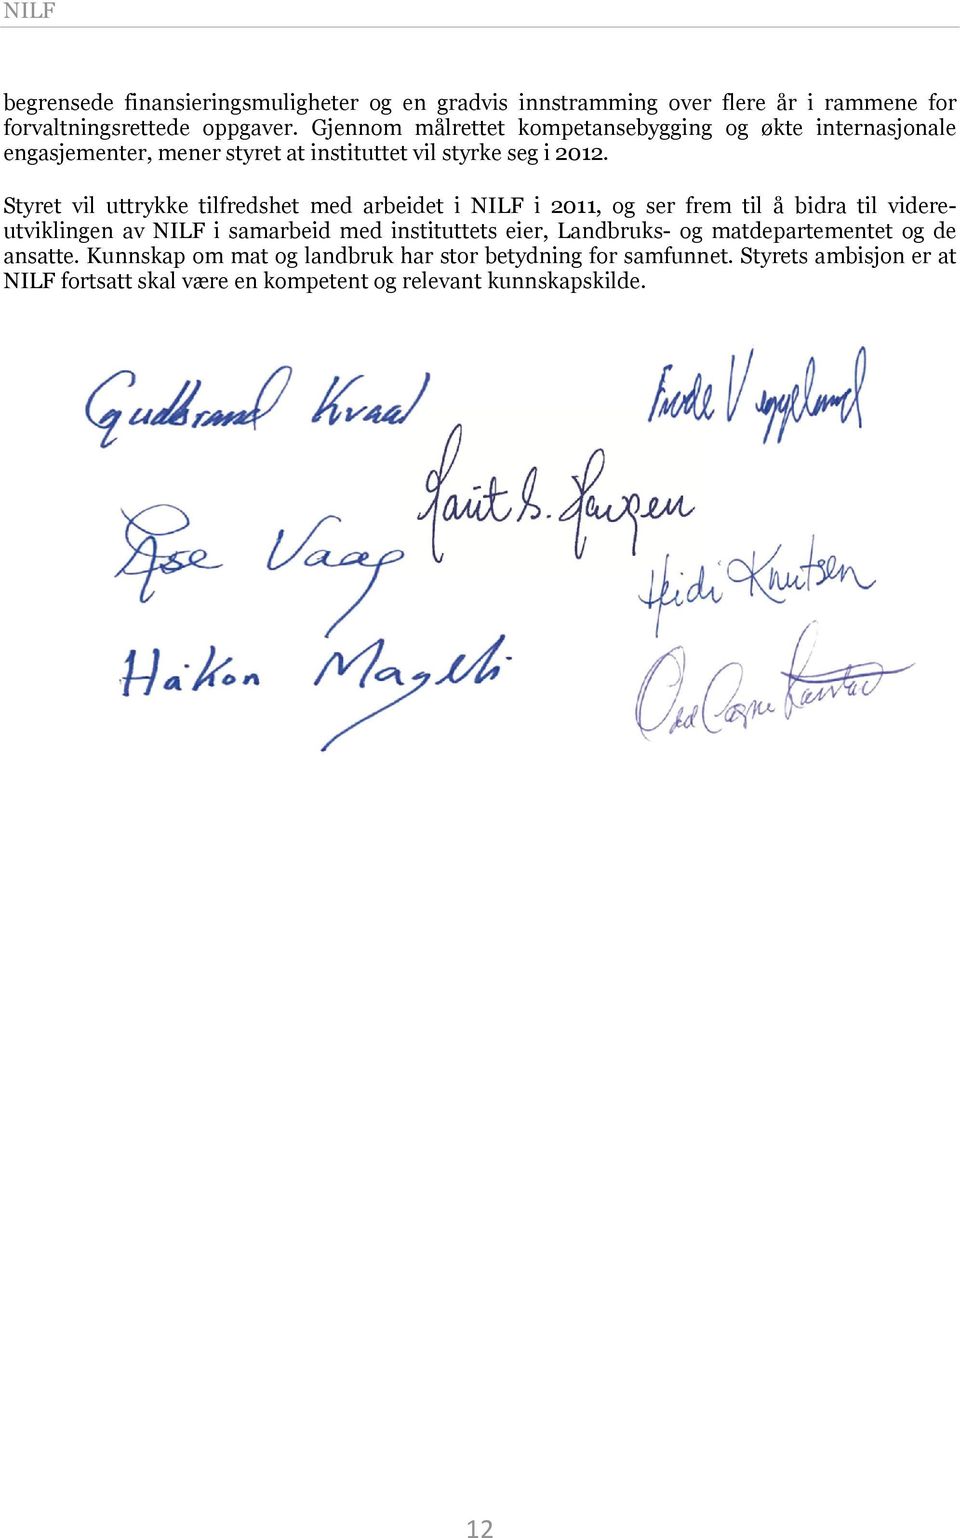 NILF
begrensede finansieringsmuligheter og en gradvis innstramming over flere år i rammene for
forvaltningsrettede oppgaver. Gjennom målrettet kompetansebygging og økte internasjonale
engasjementer, mener styret at instituttet vil styrke seg i 2012.
Styret vil uttrykke tilfredshet med arbeidet i NILF i 2011, og ser frem til å bidra til videre-
utviklingen av NILF i samarbeid med instituttets eier, Landbruks- og matdepartementet og de
ansatte. Kunnskap om mat og landbruk har stor betydning for samfunnet. Styrets ambisjon er at
NILF fortsatt skal være en kompetent og relevant kunnskapskilde.
Gudbrand Kvaal
Frode Veggeland
S.
Åse Vaag
Heidi Knutsen
Håkon Mageli
Odd Magne
12